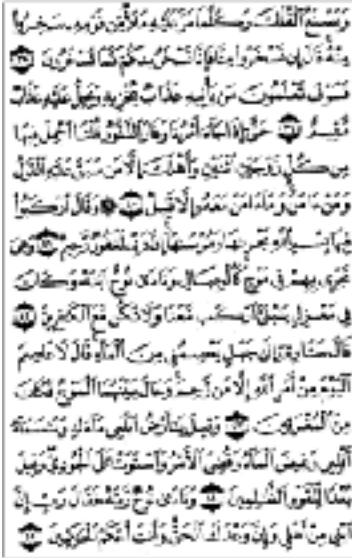 وَيَصْنَعُ الْفُلْكَ وَكُلَّمَا مَرَّ عَلَيْهِ مَلَأٌ مِّن قَوْمِهِ سَخِرُوا
مِنْهُ قَالَ إِن تَسْخَرُوا مِنَّا فَإِنَّا نَسْخَرُ مِنكُمْ كَمَا تَسْخَرُونَ ٣٨
فَسَوْفَ تَعْلَمُونَ مَن يَأْتِيهِ عَذَابٌ يُخْزِيهِ وَيَحِلُّ عَلَيْهِ عَذَابٌ
مُّقِيمٌ ٣٩ حَتَّىٰ إِذَا جَاءَ أَمْرُنَا وَفَارَ التَّنُّورُ قُلْنَا احْمِلْ فِيهَا
مِن كُلٍّ زَوْجَيْنِ اثْنَيْنِ وَأَهْلَكَ إِلَّا مَن سَبَقَ عَلَيْهِ الْقَوْلُ
وَمَنْ آمَنَ وَمَا آمَنَ مَعَهُ إِلَّا قَلِيلٌ ٤٠ ۞ وَقَالَ ارْكَبُوا
فِيهَا بِسْمِ اللَّهِ مَجْرَاهَا وَمُرْسَاهَا إِنَّ رَبِّي لَغَفُورٌ رَّحِيمٌ ٤١ وَهِيَ
تَجْرِي بِهِمْ فِي مَوْجٍ كَالْجِبَالِ وَنَادَىٰ نُوحٌ ابْنَهُ وَكَانَ
فِي مَعْزِلٍ يَا بُنَيَّ ارْكَب مَّعَنَا وَلَا تَكُن مَّعَ الْكَافِرِينَ ٤٢
قَالَ سَآوِي إِلَىٰ جَبَلٍ يَعْصِمُنِي مِنَ الْمَاءِ قَالَ لَا عَاصِمَ
الْيَوْمَ مِنْ أَمْرِ اللَّهِ إِلَّا مَن رَّحِمَ وَحَالَ بَيْنَهُمَا الْمَوْجُ فَكَانَ
مِنَ الْمُغْرَقِينَ ٤٣ وَقِيلَ يَا أَرْضُ ابْلَعِي مَاءَكِ وَيَا سَمَاءُ
أَقْلِعِي وَغِيضَ الْمَاءُ وَقُضِيَ الْأَمْرُ وَاسْتَوَتْ عَلَى الْجُودِيِّ وَقِيلَ
بُعْدًا لِّلْقَوْمِ الظَّالِمِينَ ٤٤ وَنَادَىٰ نُوحٌ رَّبَّهُ فَقَالَ رَبِّ إِنَّ
ابْنِي مِنْ أَهْلِي وَإِنَّ وَعْدَكَ الْحَقُّ وَأَنتَ أَحْكَمُ الْحَاكِمِينَ ٤٥